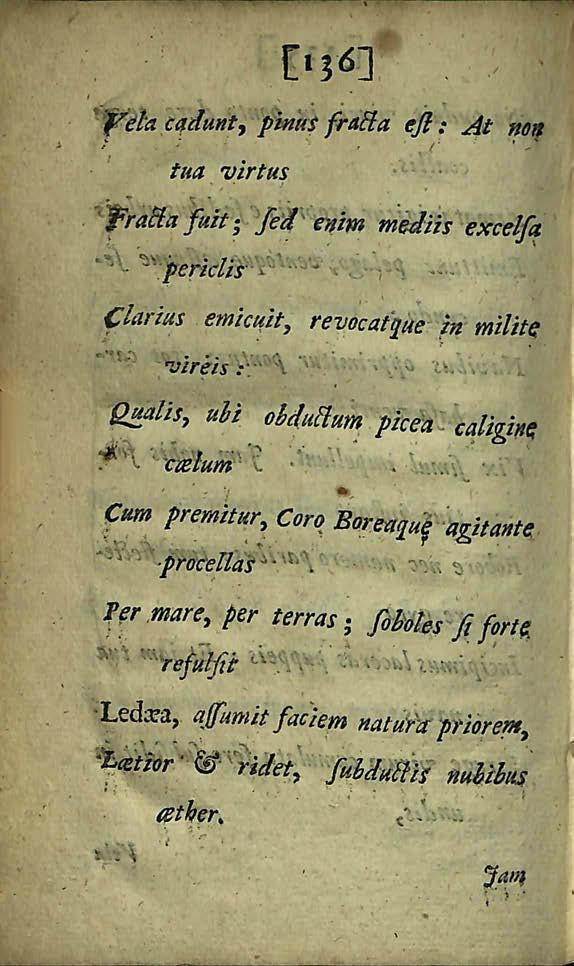 [136]
Vela cadunt, pinus fracta eſt: At non
tua virtus
Fracta fuit; ſed enim mediis excelſa
periclis
Clarius emicuit, revocatque in milite
vireis:
Qualis, ubi obductum picea caligine
cælum
Cum premitur, Coro Boreaque agitante
procellas
Per mare, per terras; ſoboles ſi forte
refulſit
Ledæa, aſſumit faciem natura priorem,
Lætior & ridet, ſubductis nubibus
æther.
Jam